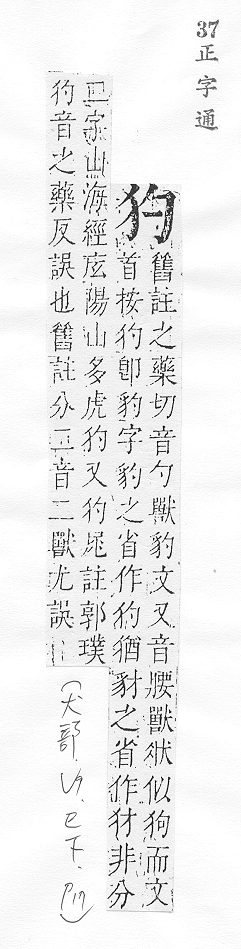 37
正字通
犳
舊註之藥切音勺獸豹文又音腰獸狀似狗而文
首按犳卽豹字豹之省作犳猶豺之省作犲非分
二字山海經底陽山多虎犳又犳尾註郭璞
犳音之藥反誤也舊註分二音二獸尤誤
(犬部.巳下.